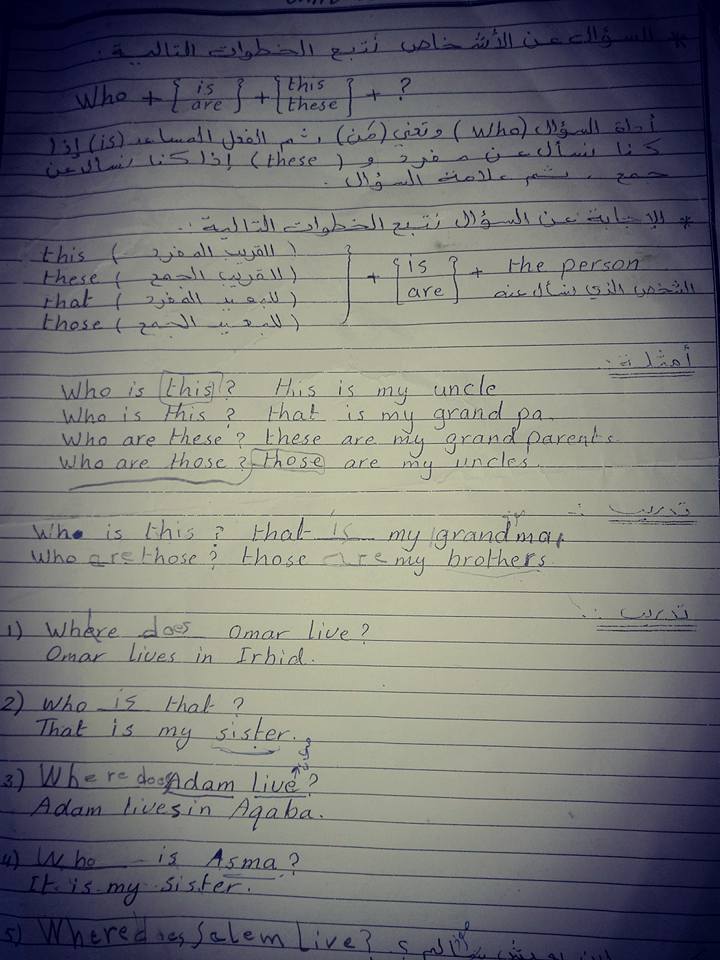 * السؤال عن الأشخاص نتبع الخطوات التالية :.
Who + { is / are } + [ this / these ] + ?
أداة السؤال (who) وتعني (مَن) ، ثم الفعل المساعد (is) إذا
كنا نسأل عن مفرد و (these) إذا كنا نسأل عن
جمع ، ثم علامة السؤال .
* للإجابة عن السؤال نتبع الخطوات التالية :.
this ( للقريب المفرد )
these ( للقريب الجمع )
that ( للبعيد المفرد )
those ( للبعيد الجمع )
} + [ is / are ] + the person
الشخص الذي نسأل عنه
أمثلة :.
Who is this ? this is my uncle
Who is this ? that is my grand pa.
Who are these ? these are my grand parents.
Who are those ? those are my uncles.
تدريب :-
Who is this ? that is my grandma.
Who are those ? those are my brothers.
تدريب :.
1) Where does Omar live ?
Omar lives in Irbid.
2) Who is that ?
That is my sister.
3) Where does Adam live ?
Adam lives in Aqaba.
4) Who is Asma ?
It is my sister.
5) Where does Salem Live ?